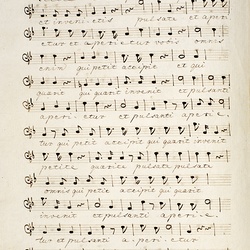 et invenietis pulsate et aperi
etur et aperietur vobis omnis
enim qui petit accipit et qui
quaerit qui quaerit invenit et pulsanti
aperi- etur et pulsanti aperie
tur qui petit accipit qui quaerit
petite quaerite pulsate pulsate
omnis qui petit accipit qui quaerit
invenit et pulsanti aperie-
tur et pulsanti a-peri-etur